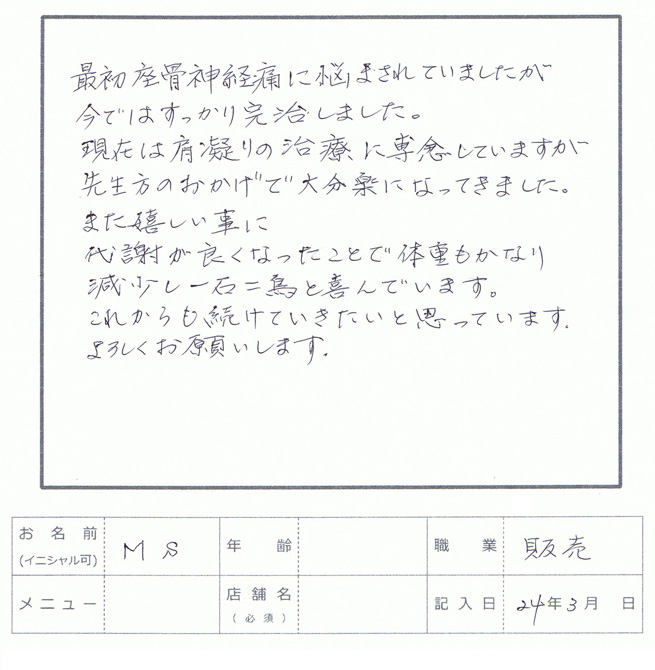 最初座骨神経痛に悩まされていましたが
今ではすっかり完治しました。
現在は肩凝りの治療に専念していますが
先生方のおかげで大分楽になってきました。
また嬉しい事に
代謝が良くなったことで体重もかなり
減少し一石二鳥と喜んでいます。
これからも続けていきたいと思っています.
よろしくお願いします.
お名前 (イニシャル可) M S 年齢 職業 販売
メニュー 店舗名 (必須) 記入日 24年3月 日